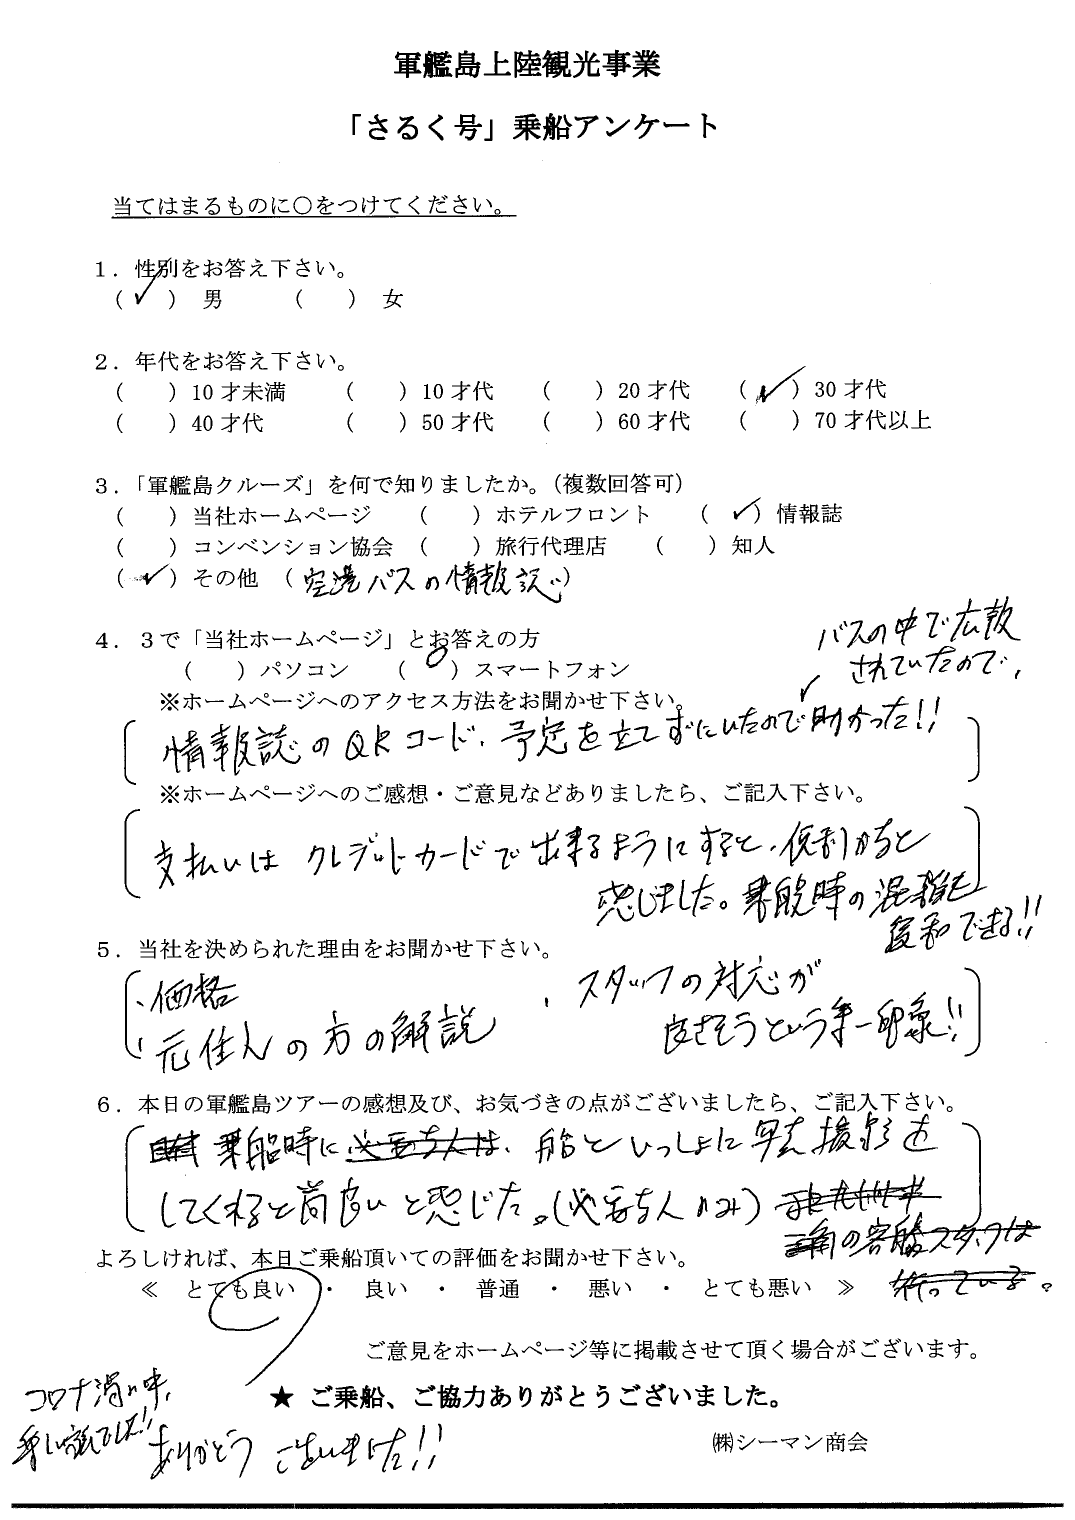 軍艦島上陸観光事業
「さるく号」乗船アンケート
当てはまるものに○をつけてください。
１．性別をお答え下さい。
（ ✓ ） 男 （ ） 女
２．年代をお答え下さい。
（ ）10才未満 （ ）10才代 （ ）20才代 （ ✓ ）30才代
（ ）40才代 （ ）50才代 （ ）60才代 （ ）70才代以上
３．「軍艦島クルーズ」を何で知りましたか。（複数回答可）
（ ）当社ホームページ （ ）ホテルフロント （ ✓ ）情報誌
（ ）コンベンション協会 （ ）旅行代理店 （ ）知人
（ ✓ ）その他 （空港バスの情報誌）
４．３で「当社ホームページ」とお答えの方
バスの中で広報
されていたので、
（ ）パソコン （ ○ ）スマートフォン
※ホームページへのアクセス方法をお聞かせ下さい。
情報誌のQRコード、予定を立てずにいたので助かった!!
※ホームページへのご感想・ご意見などありましたら、ご記入下さい。
支払いは クレジットカードで出来るようにすると、便利かなと
感じました。乗船時の混雑も
緩和できる!!
５．当社を決められた理由をお聞かせ下さい。
、価格 、スタッフの対応が
、元住人の方の解説 良さそうという第一印象!!
６．本日の軍艦島ツアーの感想及び、お気づきの点がございましたら、ご記入下さい。
乗船時に 必要な人は、船といっしょに写真撮影を
してくれると尚良いと感じた。（必要な人のみ）
よろしければ、本日ご乗船頂いての評価をお聞かせ下さい。
≪ とても良い ・ 良い ・ 普通 ・ 悪い ・ とても悪い ≫
ご意見をホームページ等に掲載させて頂く場合がございます。
★ ご乗船、ご協力ありがとうございました。
コロナ渦の中、
ありがとう ございました!!
㈱シーマン商会